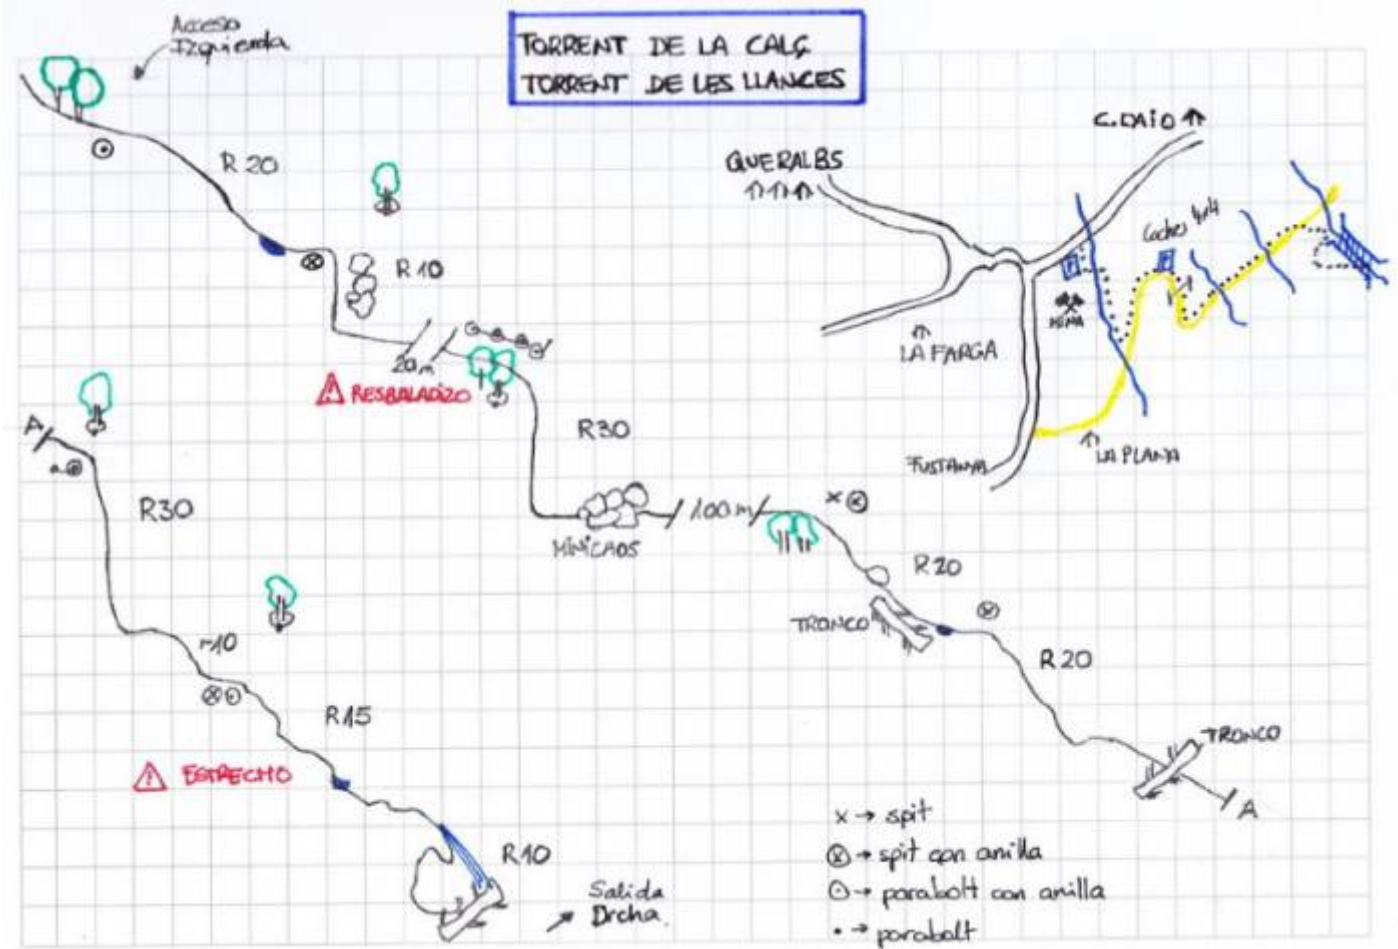 Acceso
Izquierda
TORRENT DE LA CALÇ
TORRENT DE LES LLANCES
R 20
R 10
20m
RESBALADIZO
R30
MINICAOS
100 m
R 20
TRONCO
R 20
TRONCO
A
A
R30
r10
R15
ESTRECHO
R10
Salida
Drcha.
QUERALBS
C.DAIO
LA FARGA
MINA
P
Coches 4x4
P
FUSTANYA
LA PLANA
x → spit
⊗ → spit con anilla
⊙ → parabolt con anilla
• → parabolt